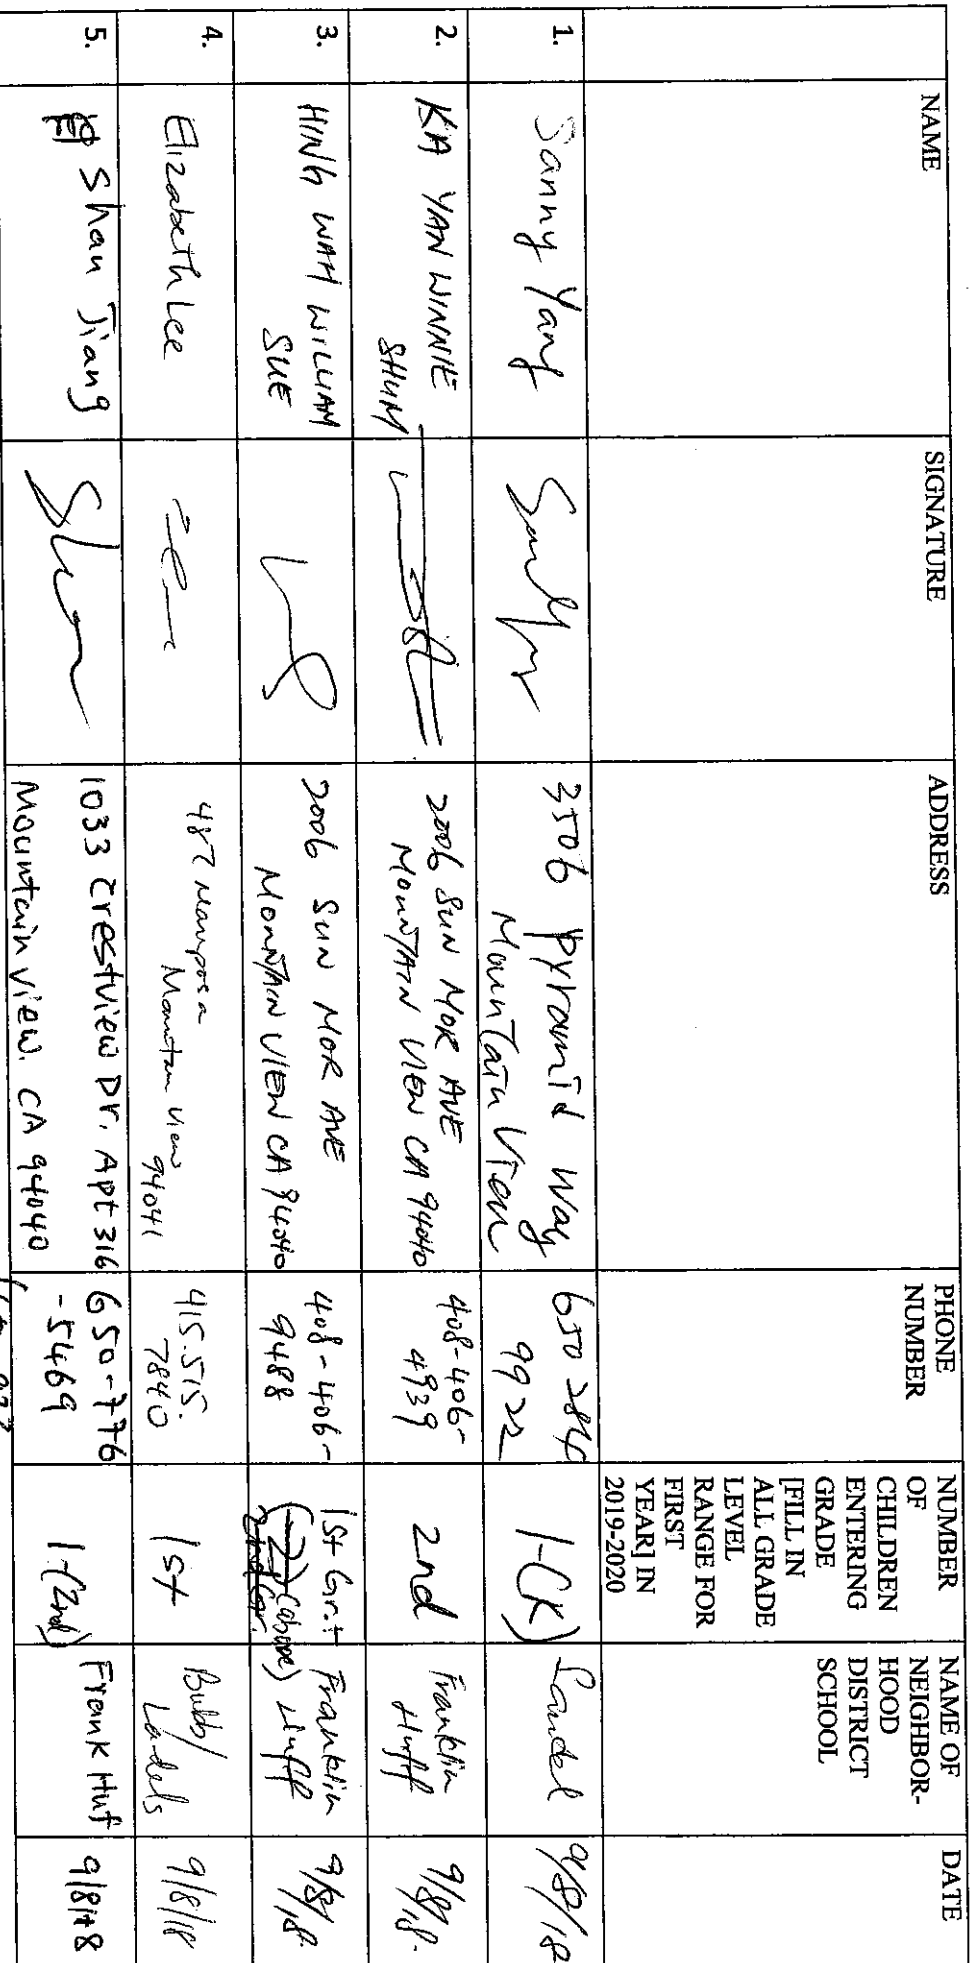 NAME
SIGNATURE
ADDRESS
PHONE
NUMBER
NUMBER
OF
CHILDREN
ENTERING
GRADE
[FILL IN
ALL GRADE
LEVEL
RANGE FOR
FIRST
YEAR] IN
2019-2020
NAME OF
NEIGHBOR-
HOOD
DISTRICT
SCHOOL
DATE
1.
Sanny Yang
3506 pyramid way
Mountain View
650 284
9922
1-(K)
Landel
9/8/18
2.
KA YAN WINNIE
SHUM
2006 SUN MOR AVE
MOUNTAIN VIEW CA 94040
408-406-
4939
2nd
Franklin
Huff
9/8/18.
3.
HING WAH WILLIAM
SUE
2006 SUN MOR AVE
MOUNTAIN VIEW CA 94040
408-406-
9488
1st Gr.+
(above)
Franklin
Huff
9/8/18.
4.
Elizabeth Lee
487 Mariposa
Mountain View
94041
415.515.
7840
1st
Bubb/
Landels
9/8/18
5.
Shan Jiang
Shan
1033 Crestview Dr. Apt 316
Mountain View. CA 94040
650-776
-5469
1-(2nd)
Frank Huf
9/8/18